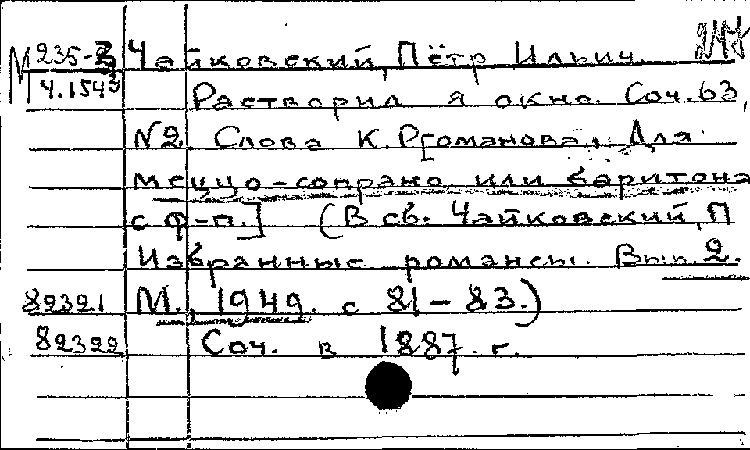 М 235-3 Чайковский, Пётр Ильич.
4.1543 Растворил я окно. Соч. 63,
N2. Слова К. Р[оманова. Для
меццо-сопрано или баритона
с ф-п.] (В сб. Чайковский, П
Избранные романсы. Вып. 2.
82321 М., 1949. с 81-83.)
82322 Соч. в 1887 г.